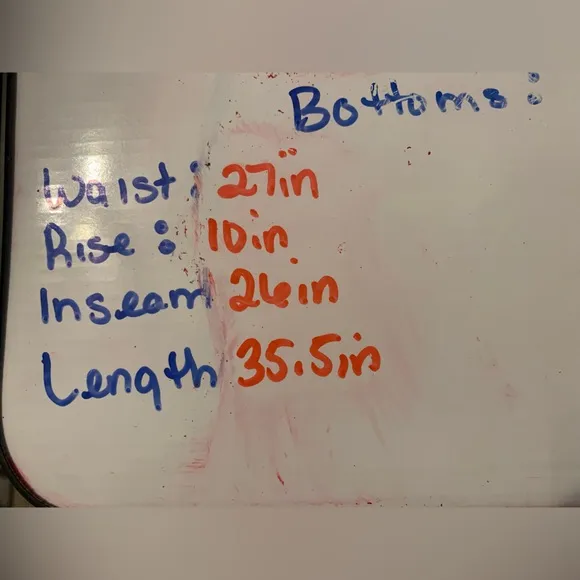 Bottoms:
Waist: 27in
Rise: 10in
Inseam 26in
Length 35.5in